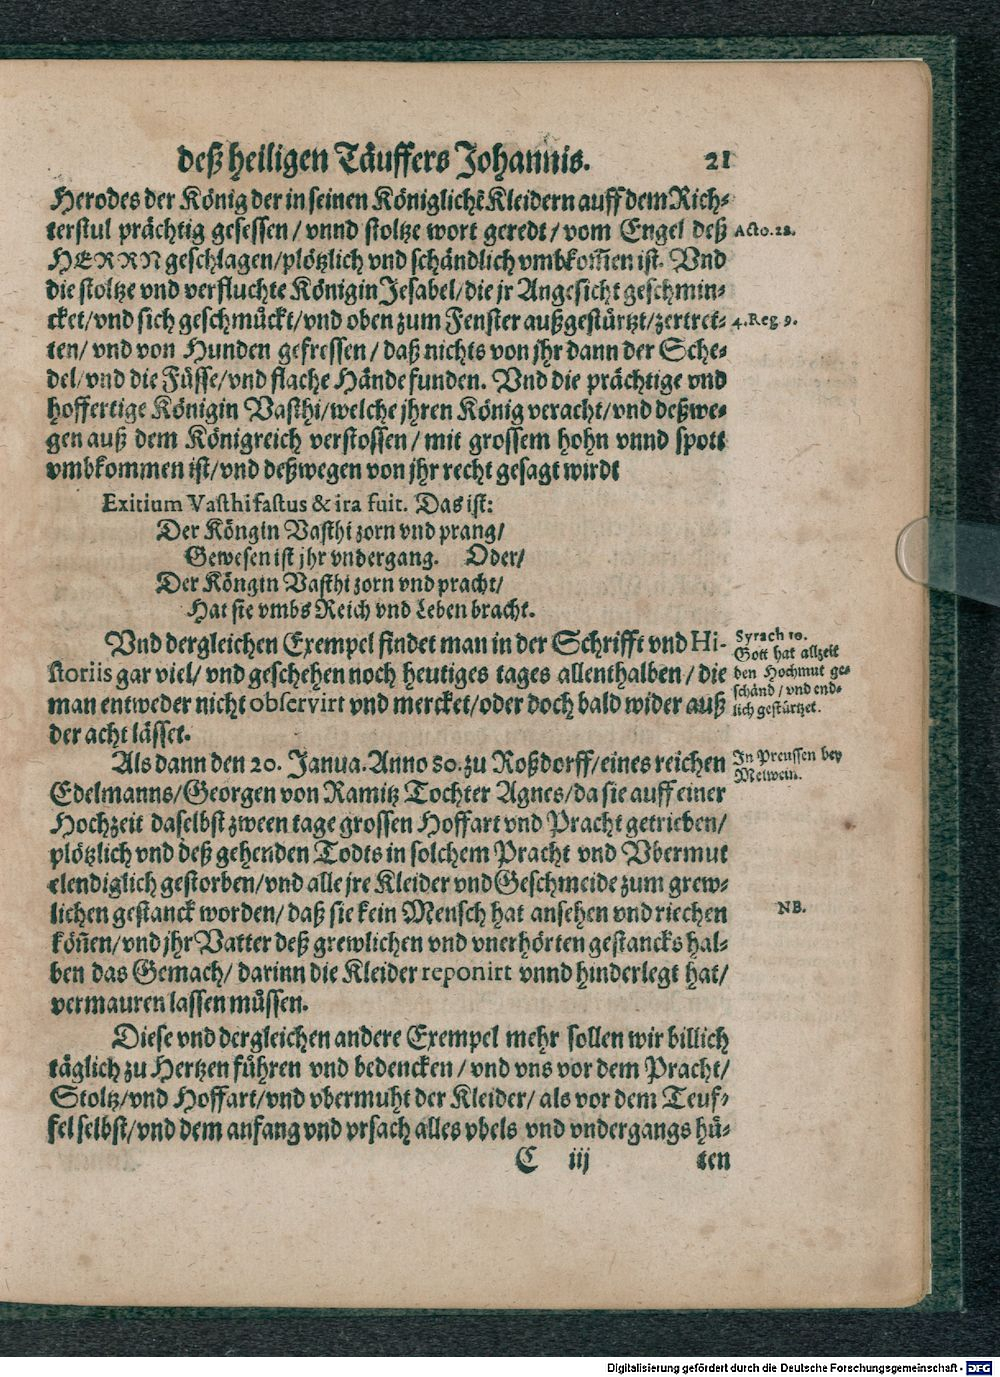 deß heiligen Täuffers Johannis. 21
Herodes der König der in seinen Königlichẽ Kleidern auff dem Rich-
terstul prächtig gesessen / vnnd stoltze wort geredt / vom Engel deß
HERRN geschlagen / plötzlich vnd schändlich vmbkom̃en ist. Vnd
die stoltze vnd verfluchte Königin Jesabel / die jr Angesicht geschmin-
cket / vnd sich geschmückt / vnd oben zum Fenster außgestürtzt / zertret-
ten / vnd von Hunden gefressen / daß nichts von jhr dann der Sche-
del / vnd die Füsse / vnd flache Hände funden. Vnd die prächtige vnd
hoffertige Königin Vasthi / welche jhren König veracht / vnd deßwe-
gen auß dem Königreich verstossen / mit grossem hohn vnnd spott
vmbkommen ist / vnd deßwegen von jhr recht gesagt wirdt
Exitium Vasthi fastus & ira fuit. Das ist:
Der Köngin Vasthi zorn vnd prang /
Gewesen ist jhr vndergang. Oder /
Der Köngin Vasthi zorn vnd pracht /
Hat sie vmbs Reich vnd Leben bracht.
Vnd dergleichen Exempel findet man in der Schrifft vnd Hi-
storiis gar viel / vnd geschehen noch heutiges tages allenthalben / die
man entweder nicht observirt vnd mercket / oder doch bald wider auß
der acht lässet.
Als dann den 20. Janua. Anno 80. zu Roßdorff / eines reichen
Edelmanns / Georgen von Ramitz Tochter Agnes / da sie auff einer
Hochzeit daselbst zween tage grossen Hoffart vnd Pracht getrieben /
plötzlich vnd deß gehenden Todts in solchem Pracht vnd Vbermut
elendiglich gestorben / vnd alle jre Kleider vnd Geschmeide zum grew-
lichen gestanck worden / daß sie kein Mensch hat ansehen vnd riechen
köñen / vnd jhr Vatter deß grewlichen vnd vnerhörten gestancks hal-
ben das Gemach / darinn die Kleider reponirt vnnd hinderlegt hat /
vermauren lassen müssen.
Diese vnd dergleichen andere Exempel mehr sollen wir billich
täglich zu Hertzen führen vnd bedencken / vnd vns vor dem Pracht /
Stoltz / vnd Hoffart / vnd vbermuht der Kleider / als vor dem Teuf-
fel selbst / vnd dem anfang vnd vrsach alles vbels vnd vndergangs hü-
C iij ten
Acto. 12.
4. Reg 9.
Syrach 10.
Gott hat allzeit
den Hochmut ge-
schänd / vnd end-
lich gestürtzet.
In Preussen bey
Melwein.
NB.
Digitalisierung gefördert durch die Deutsche Forschungsgemeinschaft - DFG